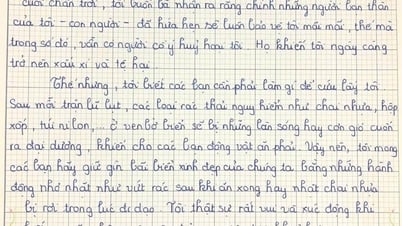 cuối chân trời, tôi buồn bã nhận ra rằng chính những người bạn thân
của tôi - con người - đã hứa hẹn sẽ luôn bảo vệ tôi mãi mãi, thế mà
trong số đó, vẫn có người cố ý huỷ hoại tôi. Họ khiến tôi ngày càng
trở nên xấu xí và tệ hại.
Thế nhưng, tôi biết các bạn cần phải làm gì để cứu lấy tôi.
Sau mỗi trận lũ lụt, các loại rác thải nguy hiểm như chai nhựa, hộp
xốp, túi ni lon,... ở ven bờ biển sẽ bị những làn sóng hay cơn gió cuốn
ra đại dương, khiến cho các bạn động vật ăn phải. Vậy nên, tôi mong
các bạn hãy giữ gìn bãi biển xinh đẹp của chúng ta bằng những hành
động nhỏ nhất như vứt rác sau khi ăn xong hay nhặt chai nhựa
bị rơi trong lúc đi dạo. Tôi thật sự rất vui và xúc động khi